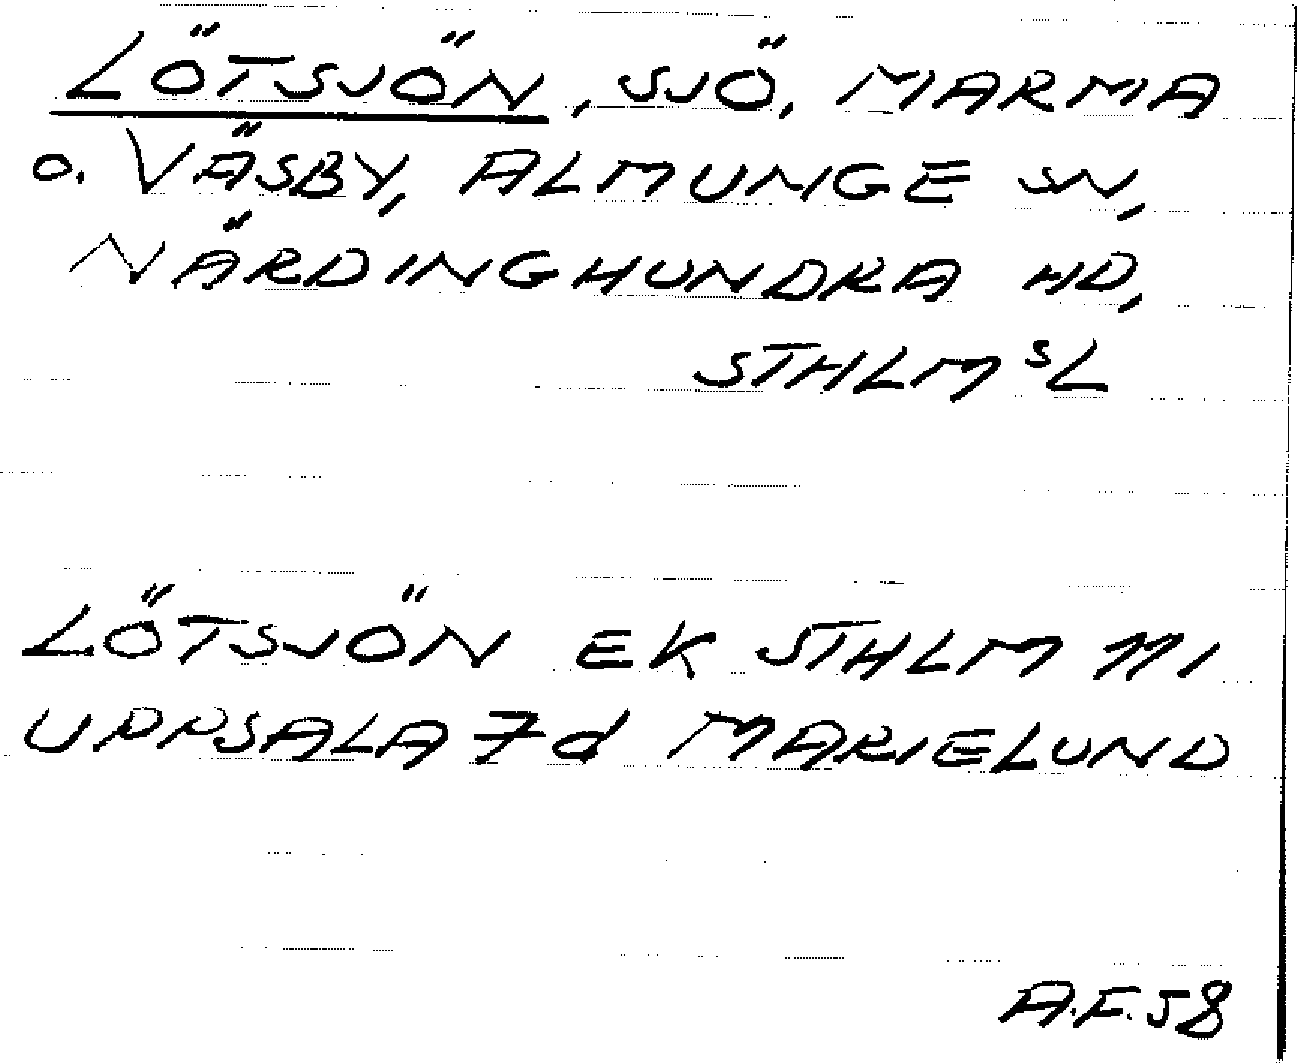 LÖTSJÖN, SJÖ, MARMA
O. VÄSBY, ALMUNGE SN,
NÄRDINGHUNDRA HD,
STHLMSL
LÖTSJÖN EK STHLM 111
UPPSALA 7d MARIELUND
A.F. 58